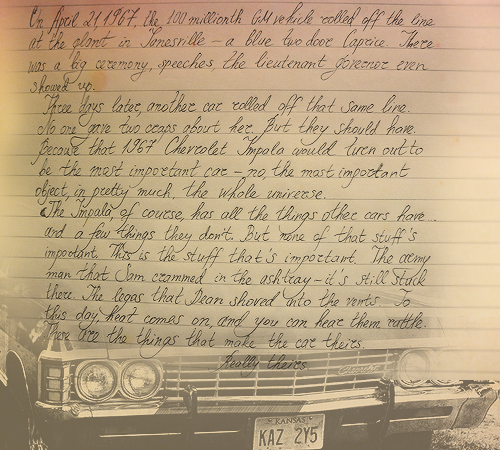 On April 21, 1967, the 100 millionth GM vehicle rolled off the line
at the plant in Janesville – a blue two door Caprice. There
was a big ceremony, speeches, the lieutenant governor even
showed up.
Three days later, another car rolled off that same line.
No one gave two craps about her. But they should have.
Because that 1967 Chevrolet Impala would turn out to
be the most important car – no, the most important
object, in pretty much, the whole universe.
The Impala, of course, has all the things other cars have...
and a few things they don't. But none of that stuff's
important. This is the stuff that's important. The army
man that Sam crammed in the ashtray – it's still stuck
there. The legos that Dean shoved into the vents. To
this day heat comes on, and you can hear them rattle.
These are the things that make the car theirs.
Really theirs.
KANSAS
KAZ 2Y5